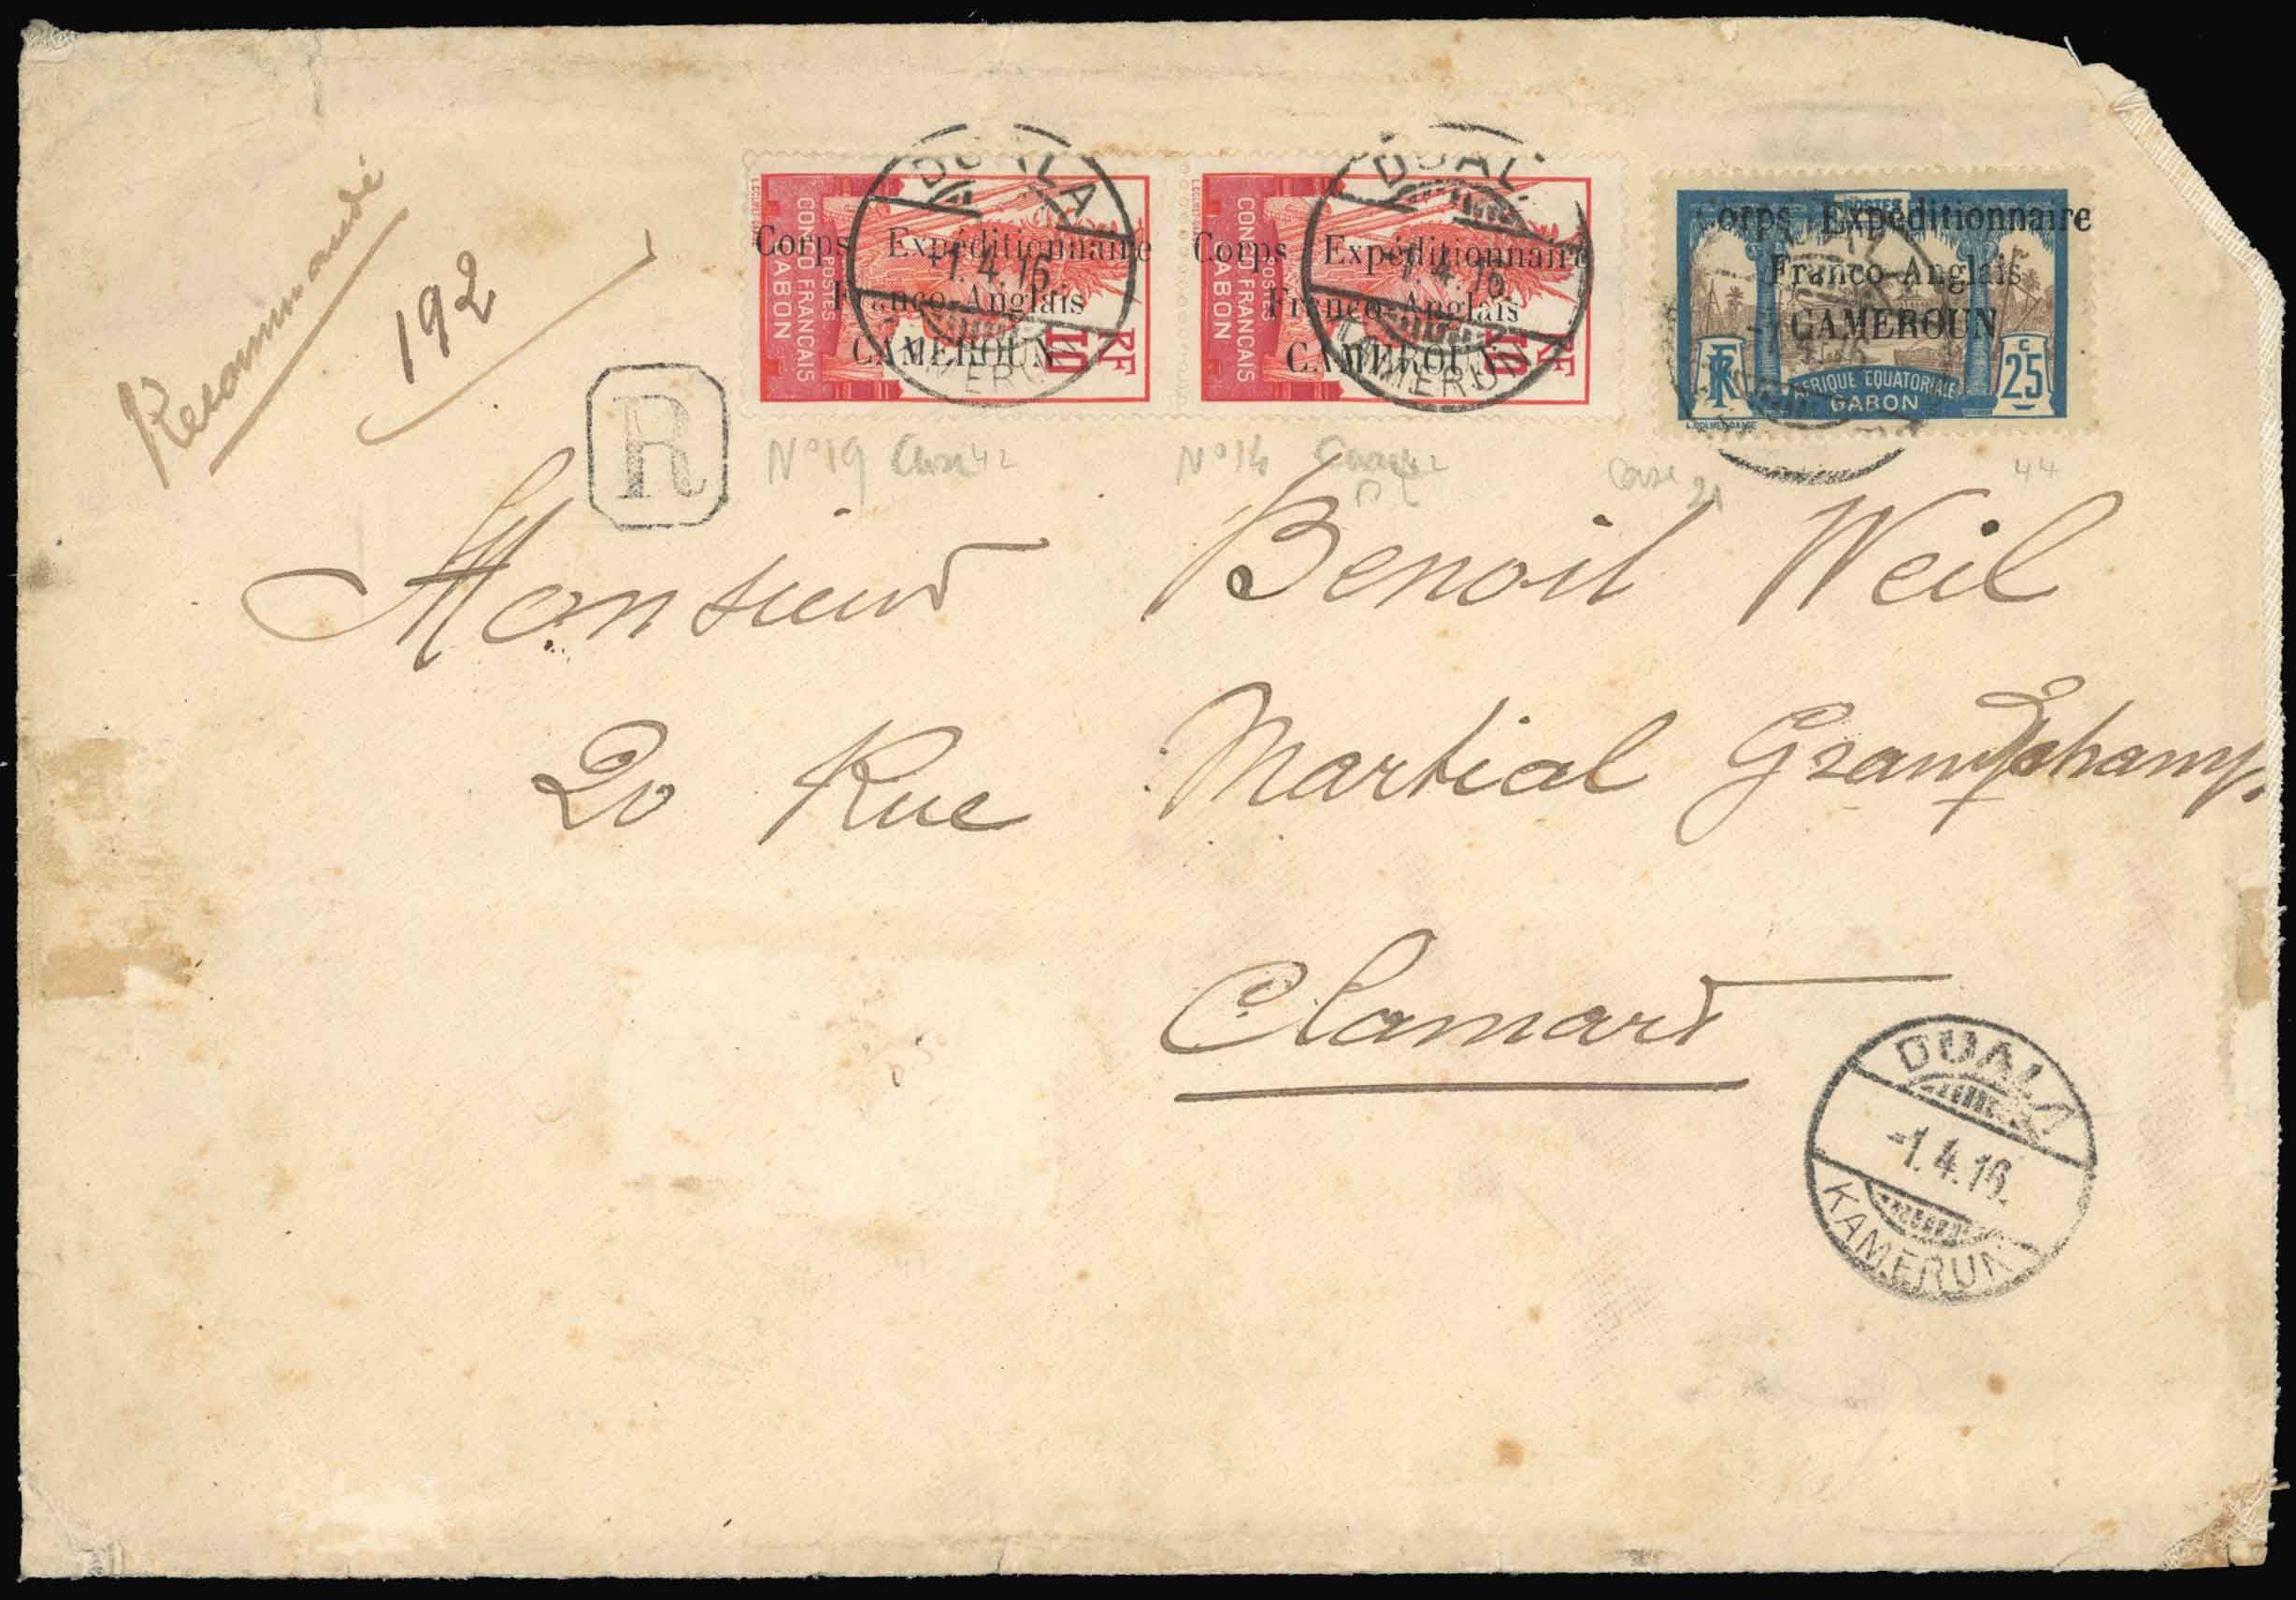 Recommandé
192
R
CONGO FRANÇAIS
GABON
POSTES
RF
10
Corps Expéditionnaire
Franco-Anglais
CAMEROUN
DUALA
-1.4.16
KAMERUN
CONGO FRANÇAIS
GABON
POSTES
RF
10
Corps Expéditionnaire
Franco-Anglais
CAMEROUN
DUAL
-1.4.16
KAMERUN
POSTES
Corps Expéditionnaire
Franco-Anglais
CAMEROUN
RF
AFRIQUE EQUATORIALE
GABON
c
25
N°19 Case 42
N°14
case 21
44
Monsieur Benoit Weil
20 Rue Martial Grandchamp.
Clamart
DUALA
-1.4.16.
KAMERUN